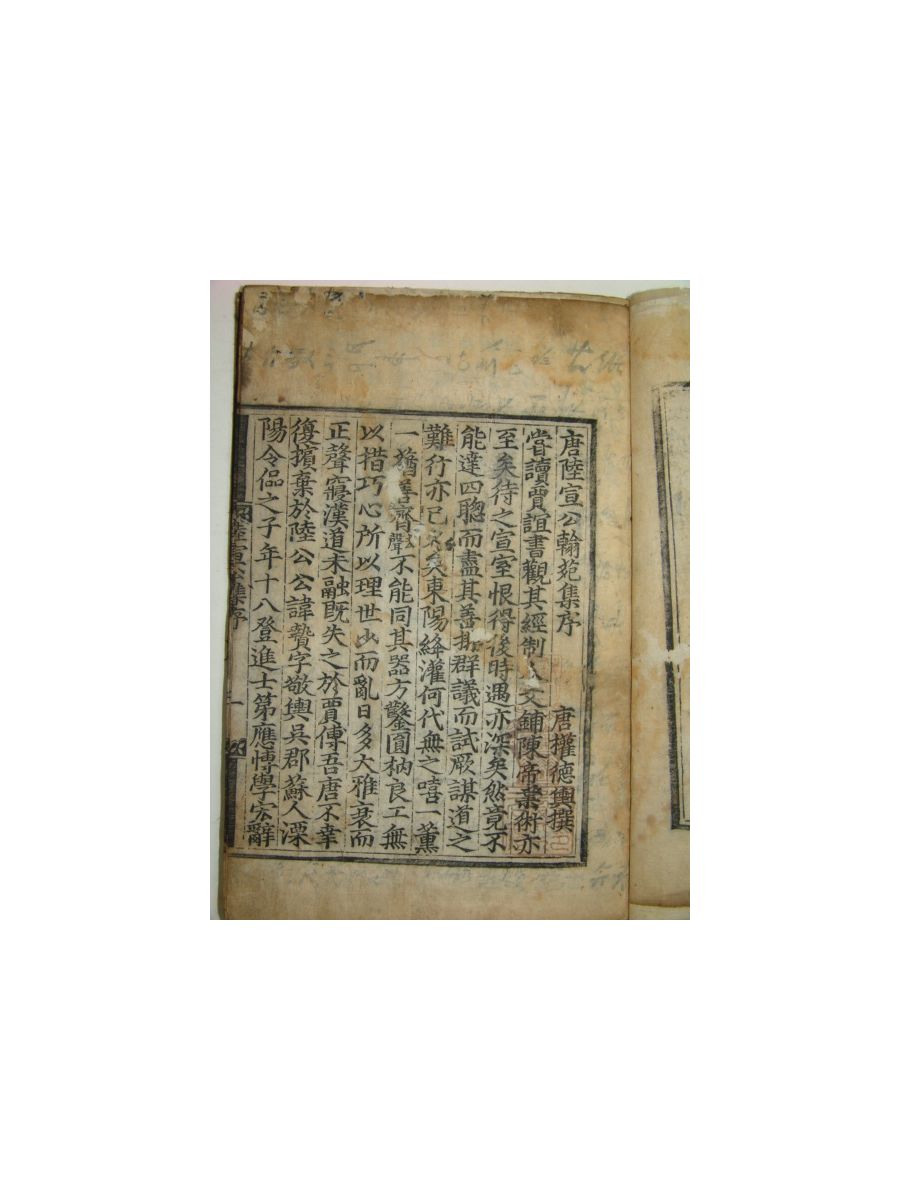 唐陸宣公翰苑集序
唐權德輿撰
嘗讀賈誼書觀其經制人文鋪陳帝業術亦
至矣待之宣室恨得後時遇亦深矣然竟不
能達四聰而盡其善排群議而試厥謀道之
難行亦已矣東陽絳灌何代無之嘻一薰
一蕕善齊聲不能同其器方鑿圓枘良工無
以措巧心所以理世少而亂日多大雅衰而
正聲寢漢道未融旣失之於賈傅吾唐不幸
復擯棄於陸公公諱贄字敬輿吳郡蘇人溧
陽令偘之子年十八登進士第應博學宏辭
陸宣公集序
一